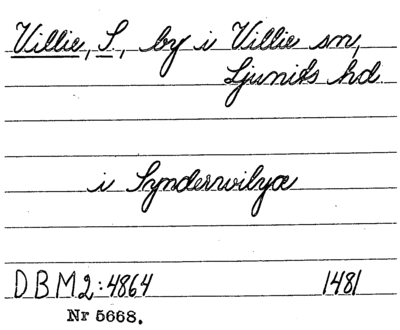 Villie, S., by i Villie sn,
Ljunits hd.
i Synderwilyæ
DBM2:4864 1481
Nr 5668.